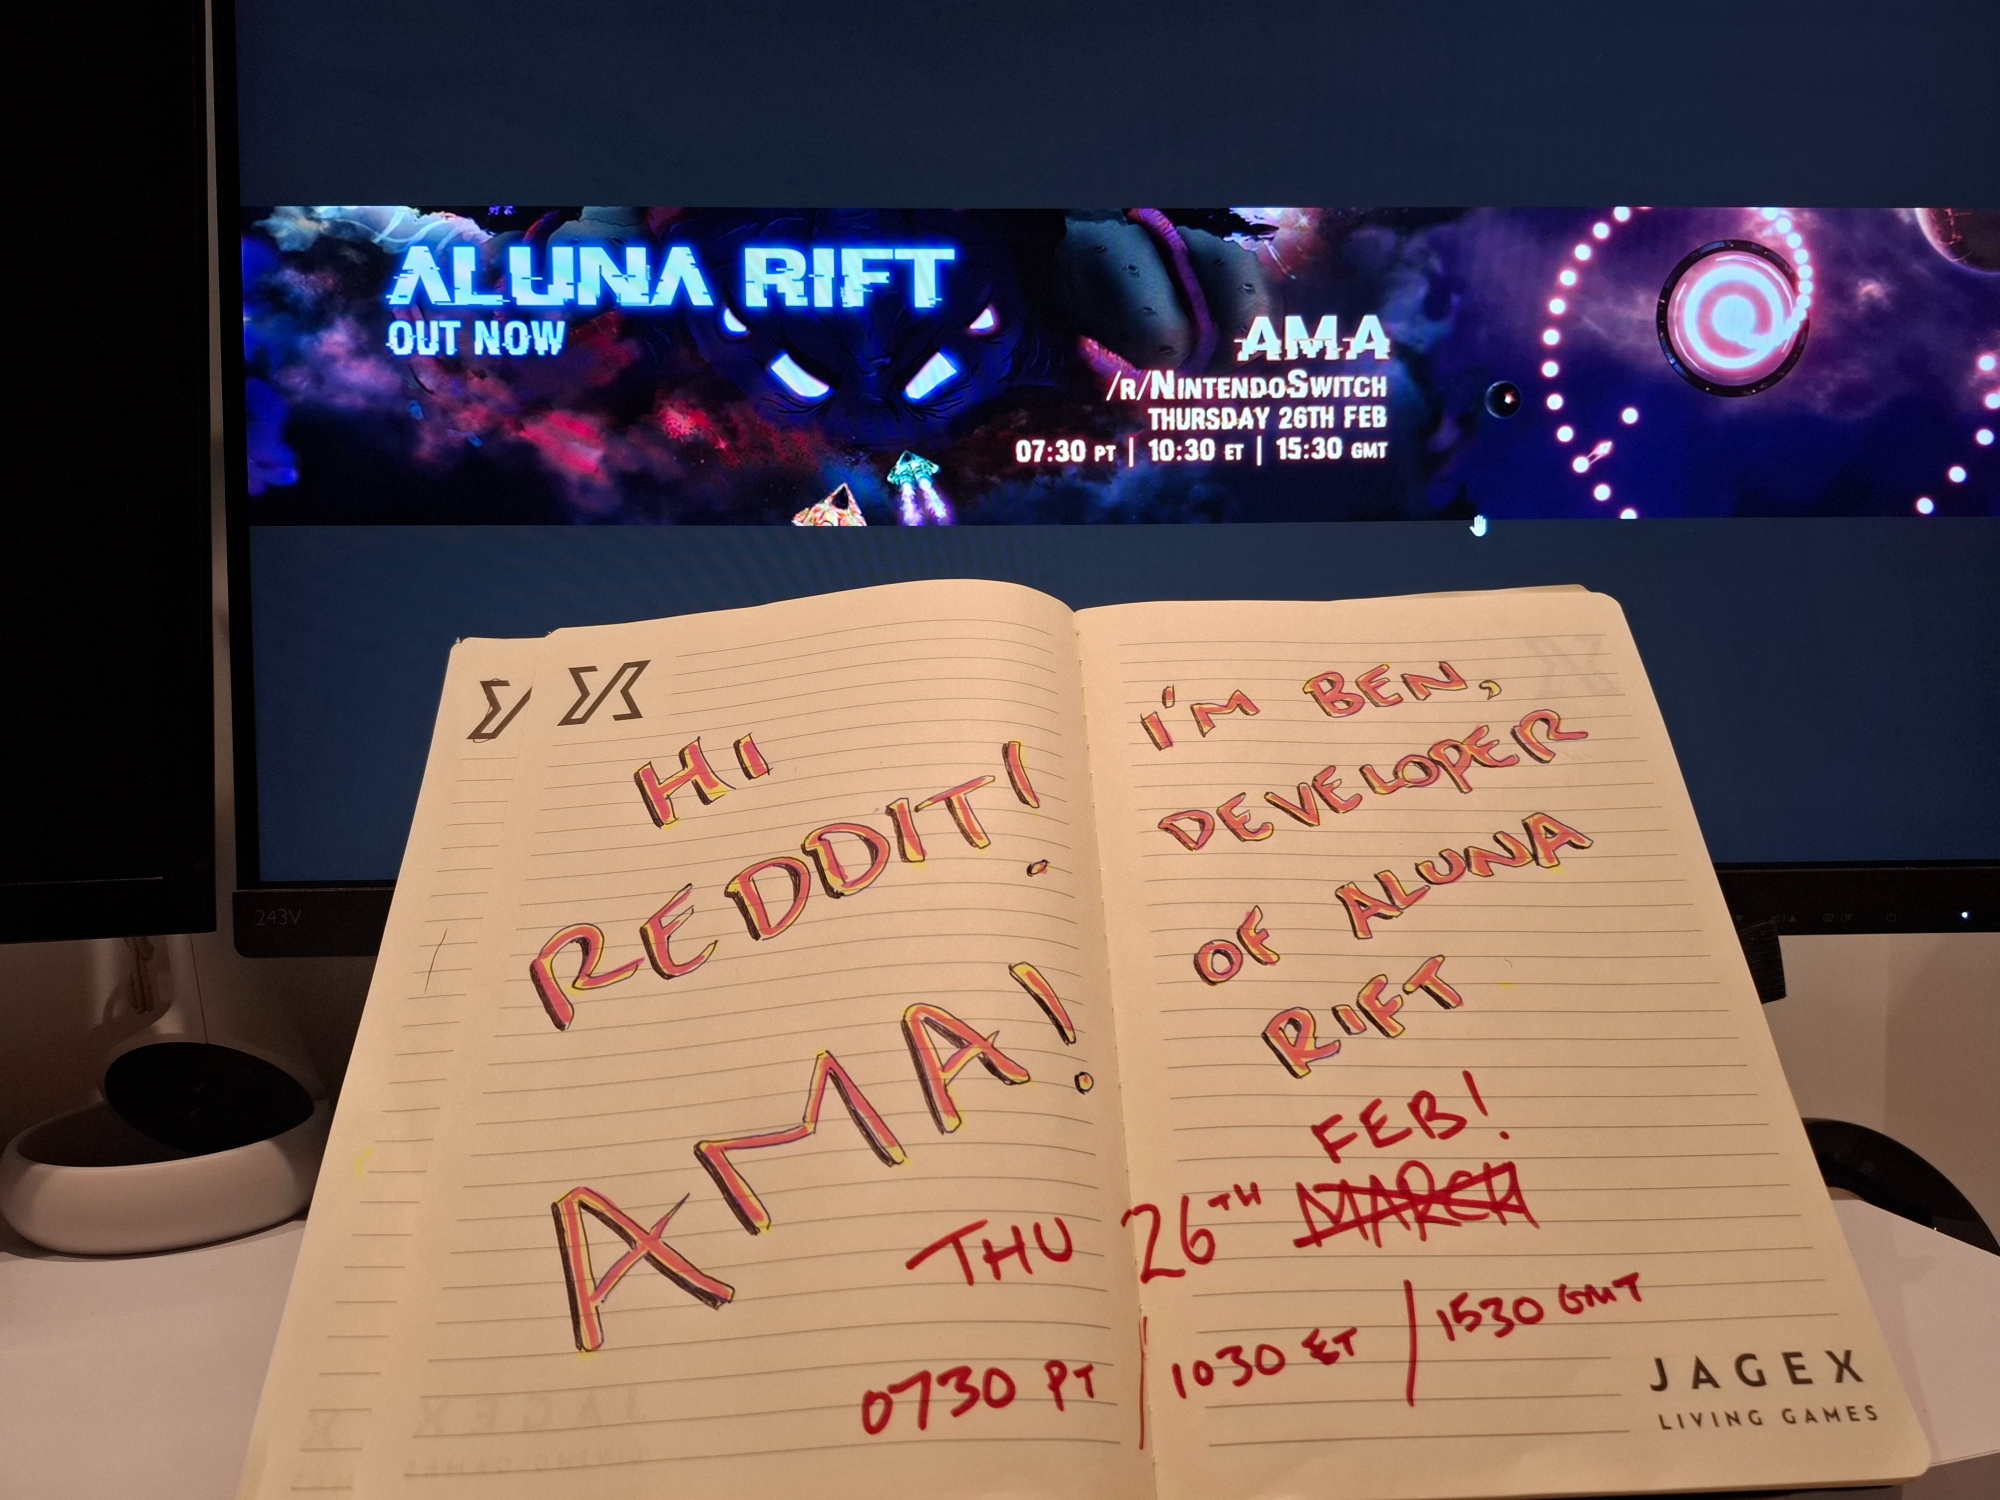 ALUNA RIFT
OUT NOW
AMA
/r/NintendoSwitch
THURSDAY 26TH FEB
07:30 PT | 10:30 ET | 15:30 GMT
243V
HI
REDDIT!
AMA!
I'M BEN,
DEVELOPER
OF ALUNA
RIFT
FEB!
THU 26TH MARCH
0730 PT / 1030 ET / 1530 GMT
JAGEX
LIVING GAMES